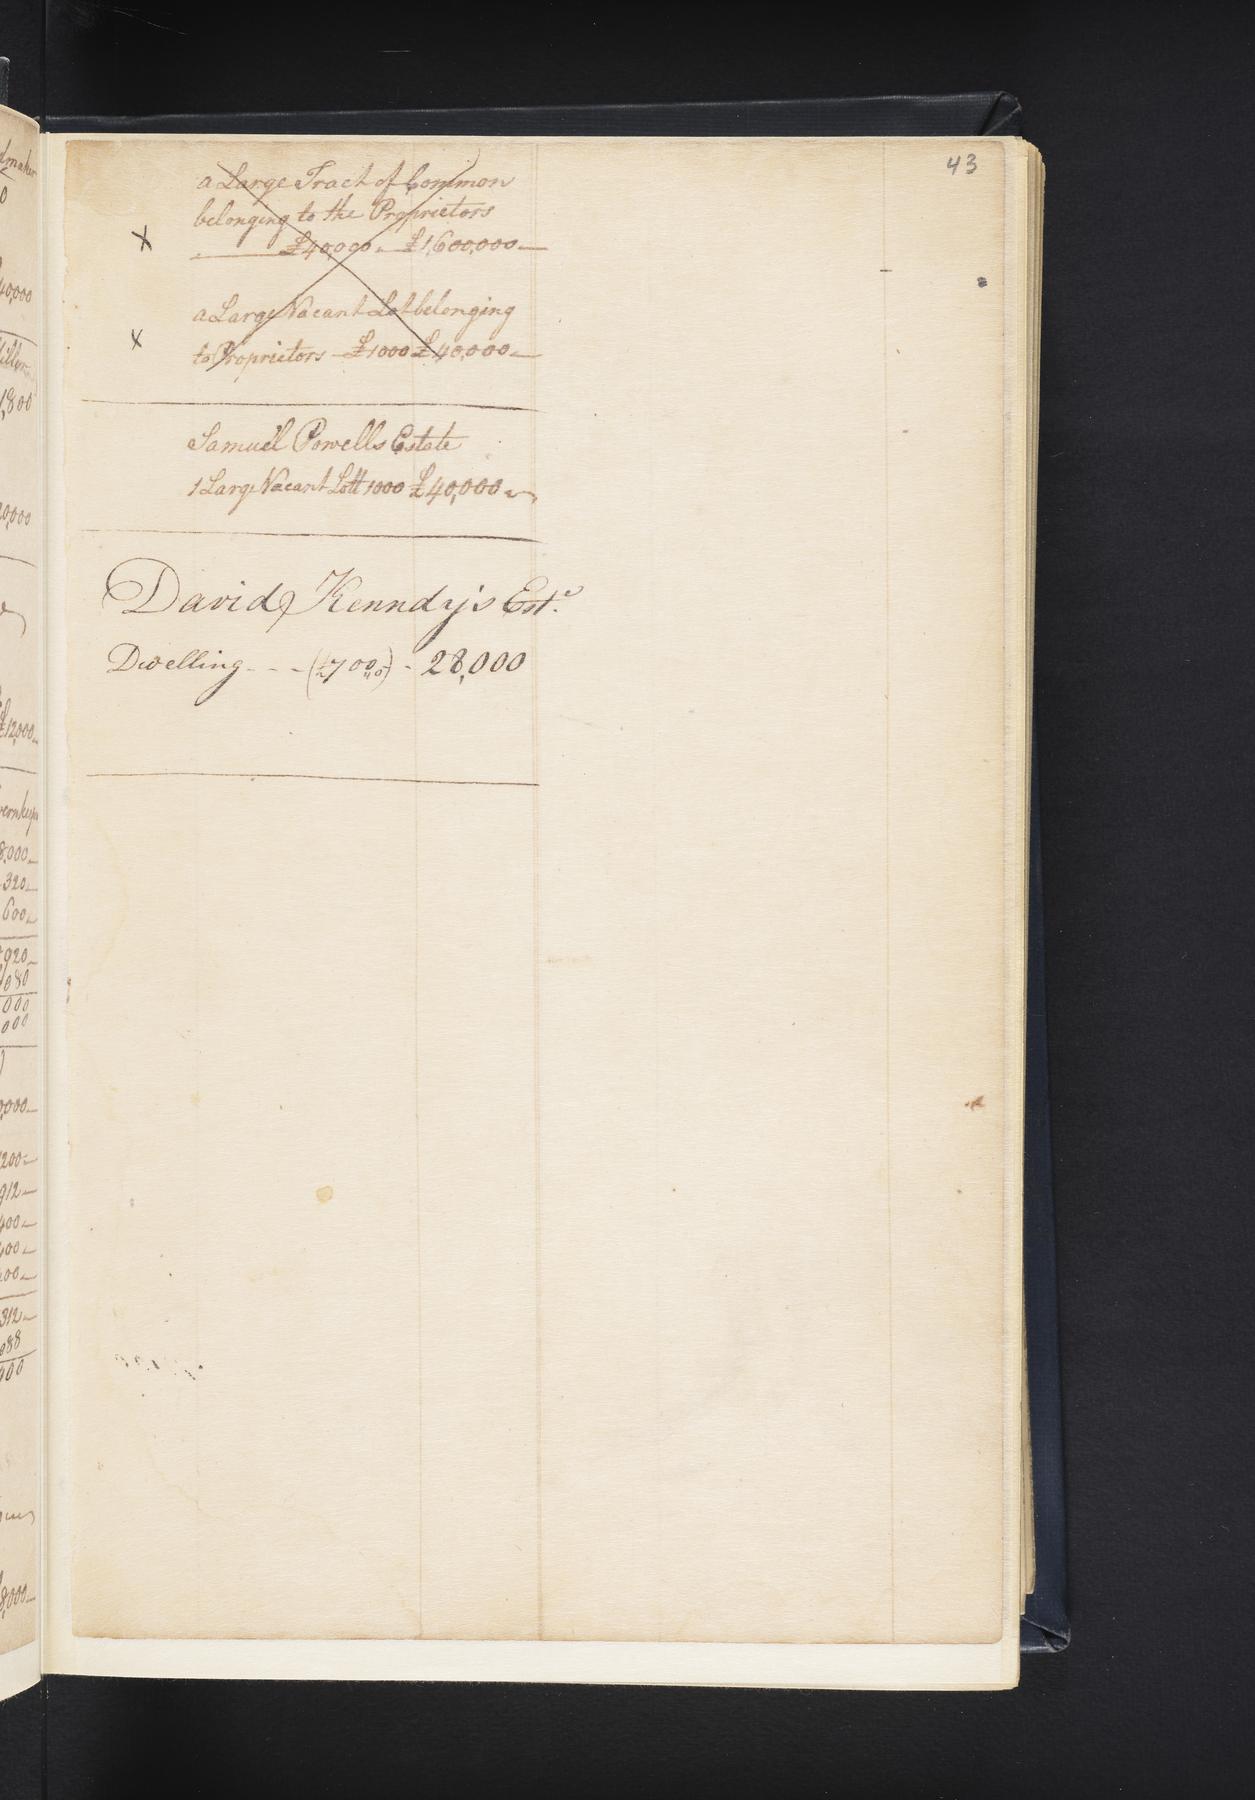 43
a Large Tract of Common
belonging to the Proprietors
x £40,000 £1,600,000
a Large Vacant Lot belonging
x to Proprietors £1000 £40,000
Samuel Powells Estate
1 Large Vacant Lott 1000 £40,000
David Kenndy's Est.e
Dwelling - - - (£700,,0) - 28,000
40,000
1,800
£12,000
8,000
320
600
920
080
000
000
200
912
400
312
088
400
8,000